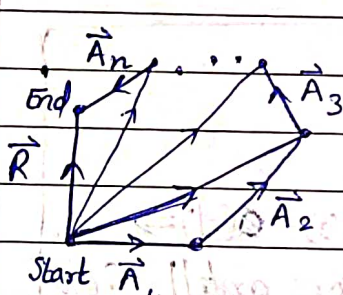 A⃗n . . . .
End A⃗3
R⃗
A⃗2
Start A⃗,